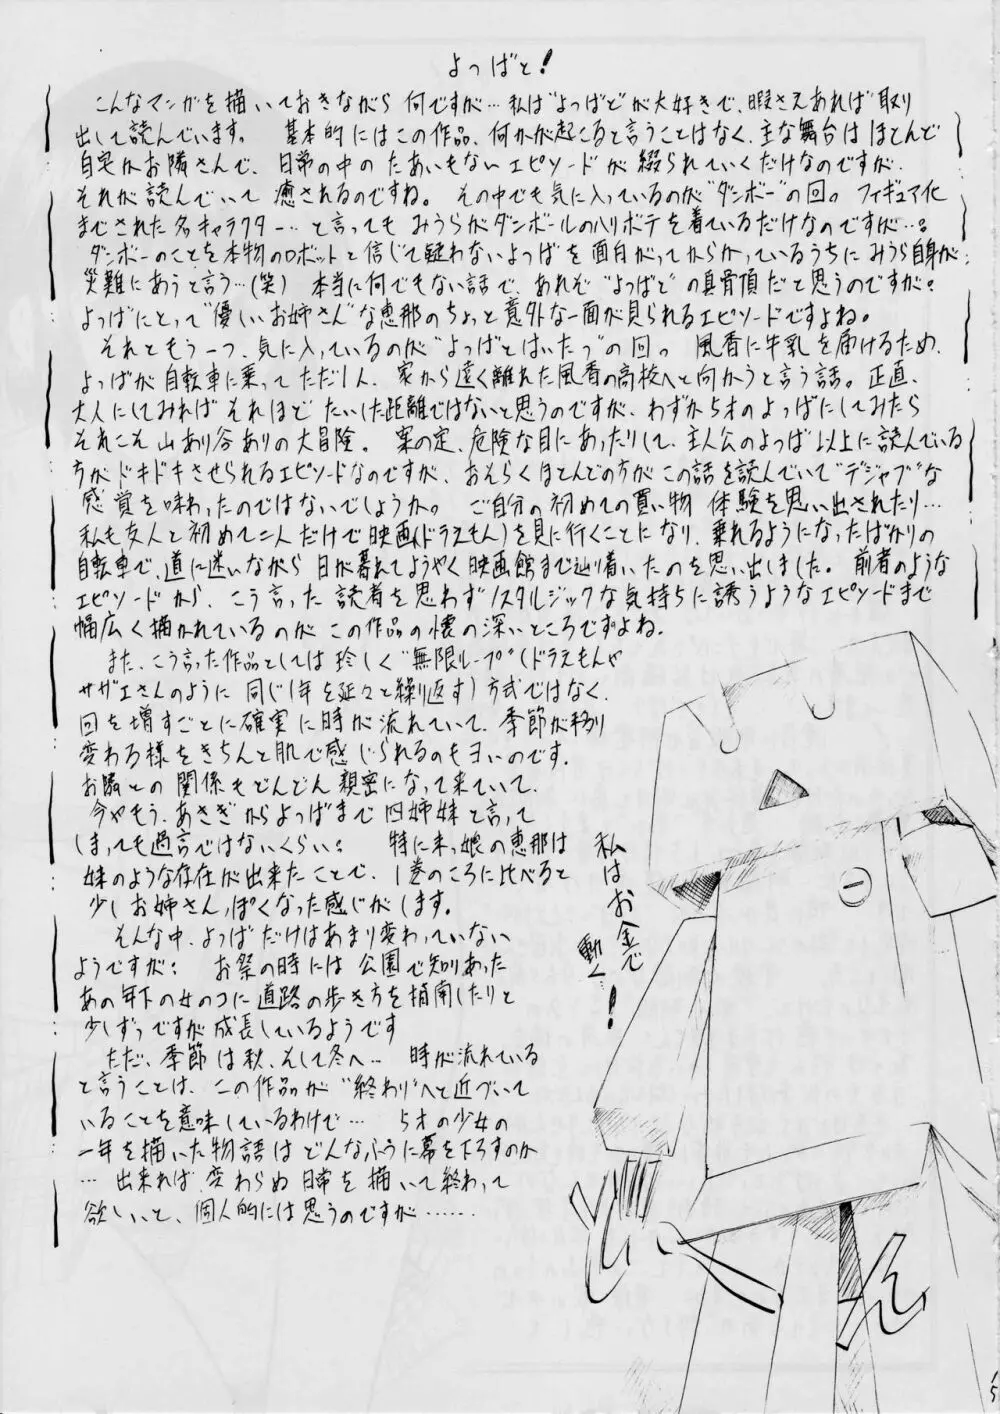 よつばと!
こんなマンガを描いておきながら何ですが…私は"よつばと"が大好きで、暇さえあれば取り
出して読んでいます。 基本的にはこの作品、何かが起こると言うことはなく、主な舞台はほとんど
自宅かお隣さんで、日常の中のたあいもないエピソードが綴られていくだけなのですが、
それが読んでいて癒されるのですね。 その中でも気に入っているのが"ダンボー"の回。フィギュア化
までされた名キャラクター…と言ってもみうらがダンボールのハリボテを着ているだけなのですが…。
ダンボーのことを本物のロボットと信じて疑わないよつばを面白がってからかっているうちにみうら自身が
災難にあうと言う…(笑) 本当に何でもない話で、あれぞ"よつばと"の真骨頂だと思うのですが。
よつばにとって"優しいお姉さん"な恵那のちょっと意外な一面が見られるエピソードですよね。
それともう一つ、気に入っているのが"よつばとはいたつ"の回。 風香に牛乳を届けるため、
よつばが自転車に乗ってただ1人、家から遠く離れた風香の高校へと向かうと言う話。正直、
大人にしてみればそれほどたいした距離ではないと思うのですが、わずか5才のよつばにしてみたら
それこそ山あり谷ありの大冒険。 案の定、危険な目にあったりして、主人公のよつば以上に読んでいる
方がドキドキさせられるエピソードなのですが、おそらくほとんどの方がこの話を読んでいて"デジャブ"な
感覚を味わったのではないでしょうか。 ご自分の初めての買い物体験を思い出されたり…
私も友人と初めて二人だけで映画(ドラえもん)を見に行くことになり、乗れるようになったばかりの
自転車で、道に迷いながら日が暮れてようやく映画館まで辿り着いたのを思い出しました。前者のような
エピソードから、こう言った読者を思わずノスタルジックな気持ちに誘うようなエピソードまで
幅広く描かれているのがこの作品の懐の深いところですよね。
また、こう言った作品としては珍しく"無限ループ"(ドラえもんや
サザエさんのように同じ1年を延々と繰り返す)方式ではなく、
回を増すごとに確実に時が流れていて、季節が移り
変わる様をきちんと肌で感じられるのもヨいのです。
お隣との関係もどんどん親密になって来ていて、
今やもう、あさぎからよつばまで四姉妹と言って
しまっても過言ではないくらい。 特に末っ娘の恵那は
妹のような存在が出来たことで、1巻のころに比べると
少しお姉さんっぽくなった感じがします。
そんな中、よつばだけはあまり変わっていない
ようですが。 お祭の時には公園で知りあった
あの年下の女のコに道路の歩き方を指南したりと
少しずつですが成長しているようです
ただ、季節は秋、そして冬へ… 時が流れている
と言うことは、この作品が"終わり"へと近づいて
いることを意味しているわけで… 5才の少女の
一年を描いた物語はどんなふうに幕を下ろすのか
…出来れば変わらぬ日常を描いて終わって
欲しいと、個人的には思うのですが……
私はお金で
動く…!
15